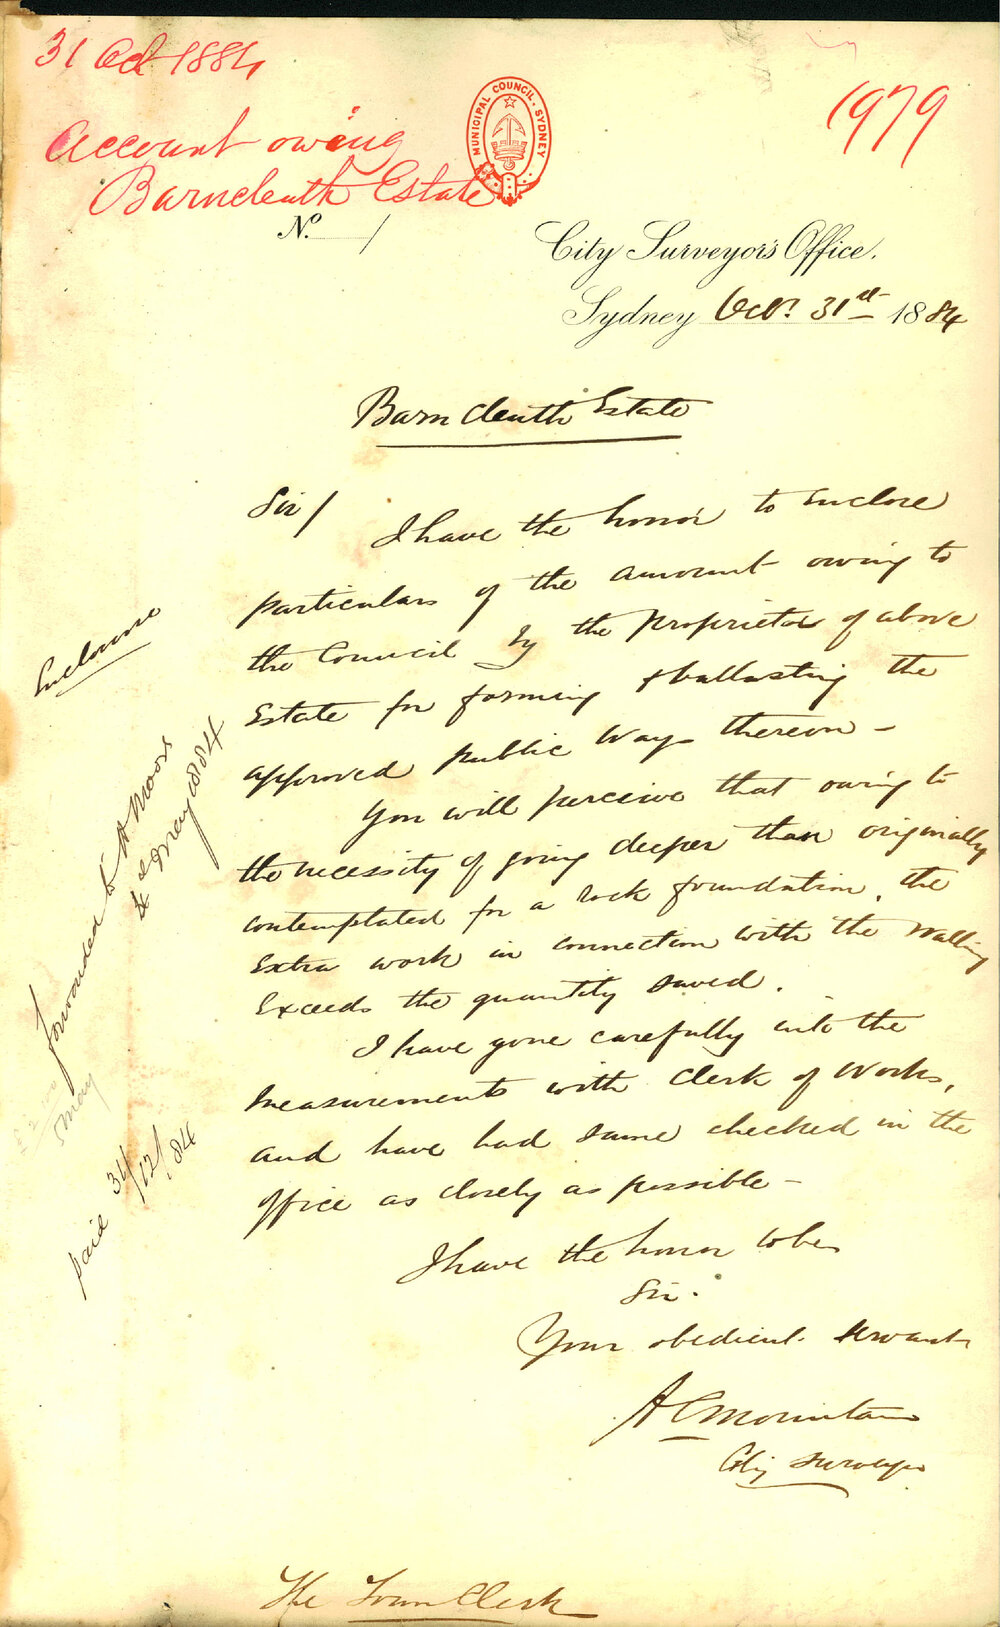 31 Oct 1884
1979
Account owing
Barncleuth Estate
MUNICIPAL COUNCIL · SYDNEY
No. /
City Surveyor's Office.
Sydney Octr. 31st 1884
Barncleuth Estate
Sir/ I have the honor to enclose
particulars of the amount owing to
the Council by the Proprietor of above
Estate for forming & ballasting the
approved public ways thereon –
You will perceive that owing to
the necessity of going deeper than originally
contemplated for a rock foundation, the
extra work in connection with the walling
exceeds the quantity saved.
I have gone carefully into the
measurements with Clerk of Works,
and have had same checked in the
office as closely as possible –
I have the honor to be
Sir.
Your obedient servant
A C Mountain
City Surveyor
The Town Clerk
Enclosure
forwarded to H Moors
May 1884
May
paid 31/12/84